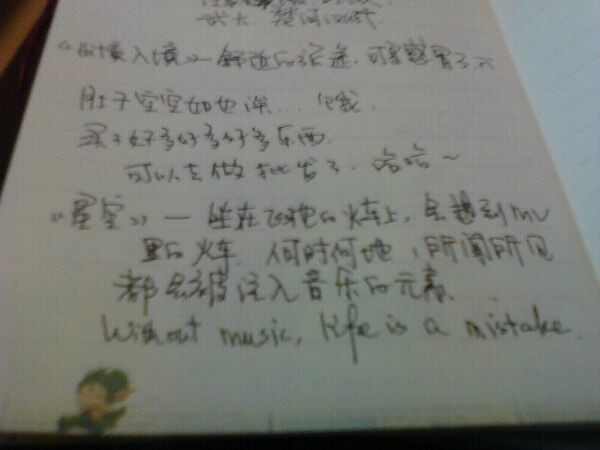 武大. 楚河汉街
入境》—
肚子空空如也 ... 饿.
买了好多好多好多东西.
可以去做批发了. 哈哈~
《星空》— 坐在飞驰的火车上, 会想到 mv
里的火车. 何时何地, 所闻所见
都会被注入音乐的元素.
Without music, life is a mistake.